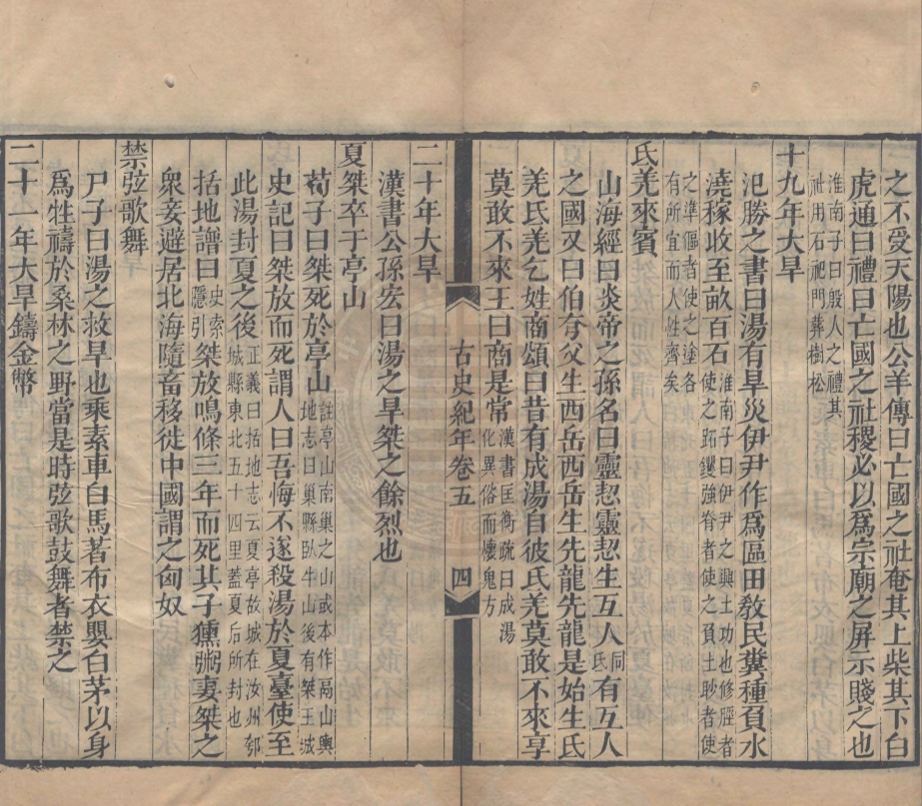 之不受天陽也公羊傳曰亡國之社奄其上柴其下白
虎通曰禮曰亡國之社稷必以爲宗廟之屏示賤之也
淮南子曰殷人之禮其
社用石祀門葬樹松
十九年大旱
氾勝之書曰湯有旱災伊尹作爲區田敎民糞種負水
澆稼收至畝百石淮南子曰伊尹之興土功也修脛者
使之跖钁強脊者使之負土眇者使
之準傴者使之塗各
有所宜而人性齊矣
氐羌來賓
山海經曰炎帝之孫名曰靈恝靈恝生互人同氏有互人
之國又曰伯夷父生西岳西岳生先龍先龍是始生氐
羌氐羌乞姓商頌曰昔有成湯自彼氐羌莫敢不來享
莫敢不來王曰商是常漢書匡衡疏曰成湯
化異俗而懷鬼方
古史紀年卷五
四
二十年大旱
漢書公孫宏曰湯之旱桀之餘烈也
夏桀卒于亭山
荀子曰桀死於亭山註亭山南巢之山或本作鬲山輿
地志曰巢縣臥牛山後有桀王城
史記曰桀放而死謂人曰吾悔不遂殺湯於夏臺使至
此湯封夏之後正義曰括地志云夏亭故城在汝州郟
城縣東北五十四里蓋夏后所封也
括地譜曰史索
隱引桀放鳴條三年而死其子獯粥妻桀之
衆妾避居北海隨畜移徙中國謂之匈奴
禁弦歌舞
尸子曰湯之救旱也乘素車白馬著布衣嬰白茅以身
爲牲禱於桑林之野當是時弦歌鼓舞者禁之
二十一年大旱鑄金幣